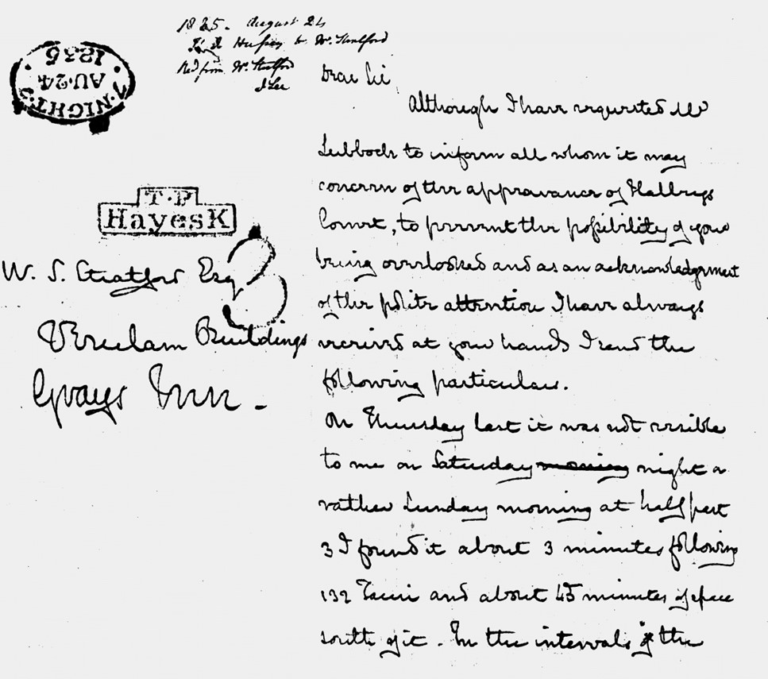 1835. August 24
Hussey to W. Stratford
Recd from W. Stratford
J Lee
7. NIGHT. 
AU. 24
1835
T.P
Hayes K
3
W. S. Stratford Esq
Verulam Buildings
Grays Inn -
Dear Sir
Although I have requested Mr
Lubbock to inform all whom it may
concern of the appearance of Halleys
Comet, to prevent the possibility of your
being overlooked and as an acknowledgement
of the polite attention I have always
received at your hands I send the
following particulars.
On Thursday last it was not visible
to me on Saturday morning night or
rather Sunday morning at half past
3 I found it about 3 minutes following
132 Tauri and about 45 minutes of space
south of it. In the intervals of the